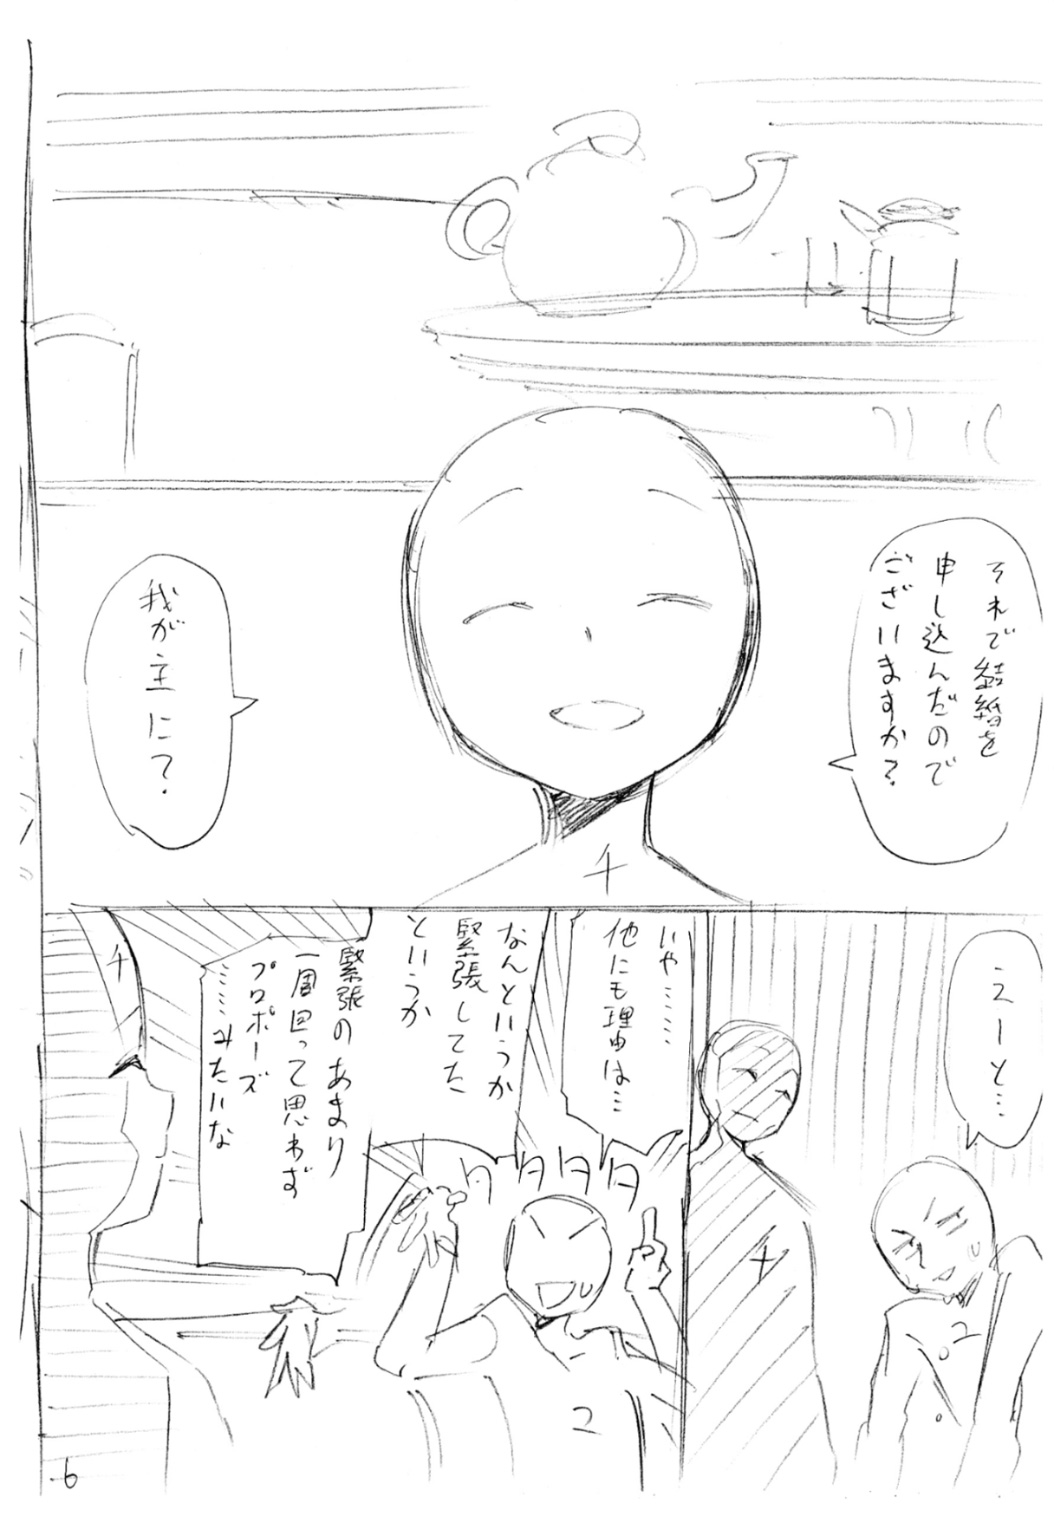 それで結婚を
申し込んだので
ございますか?
我が主に?
チ
えーと…
いや……
他にも理由は…
なんというか
緊張してた
というか
緊張のあまり
一周回って思わず
プロポーズ
……みたいな
タタタタ
チ
ナ
ユ
ユ
6